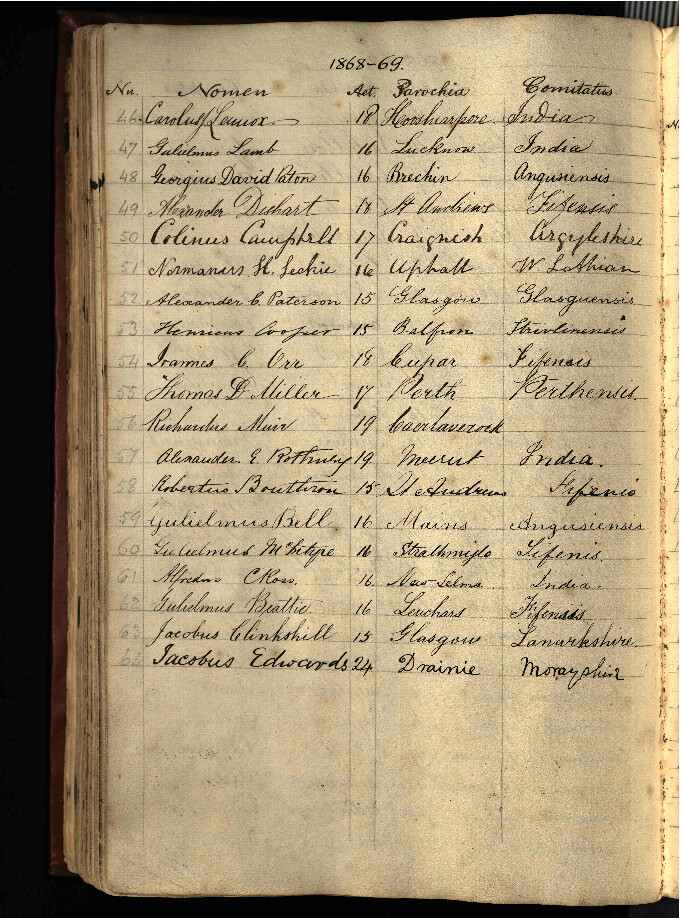 1868-69.
No. Nomen Aet. Parochia Comitatus
46 Carolus Lennox 18 Hooshiarpore India
47 Gulielmus Lamb 16 Lucknow India
48 Georgius David Paton 16 Brechin Angusiensis
49 Alexander Duthart 18 St Andrews Fifensis
50 Colinus Campbell 17 Craignish Argyleshire
51 Normanus H. Leckie 16 Uphall W Lothian
52 Alexander C. Paterson 15 Glasgow Glasguensis
53 Henricus Cooper 15 Balfron Strivlinensis
54 Ioannes C. Orr 18 Cupar Fifensis
55 Thomas D Miller 17 Perth Perthensis
56 Richardus Muir 19 Caerlaverock
57 Alexander E. Rothney 19 Meerut India.
58 Robertus Bouthron 15 St Andrews Fifenis
59 Gulielmus Bell 16 Mains Angusiensis
60 Gulielmus McIntype 16 Strathmiglo Fifenis
61 Alfredus C Ross. 16 India.
62 Gulielmus Beattie 16 Leuchars Fifensis
63 Jacobus Clinkskill 15 Glasgow Lanarkshire.
64 Iacobus Edwards 24 Drainie Morayshire